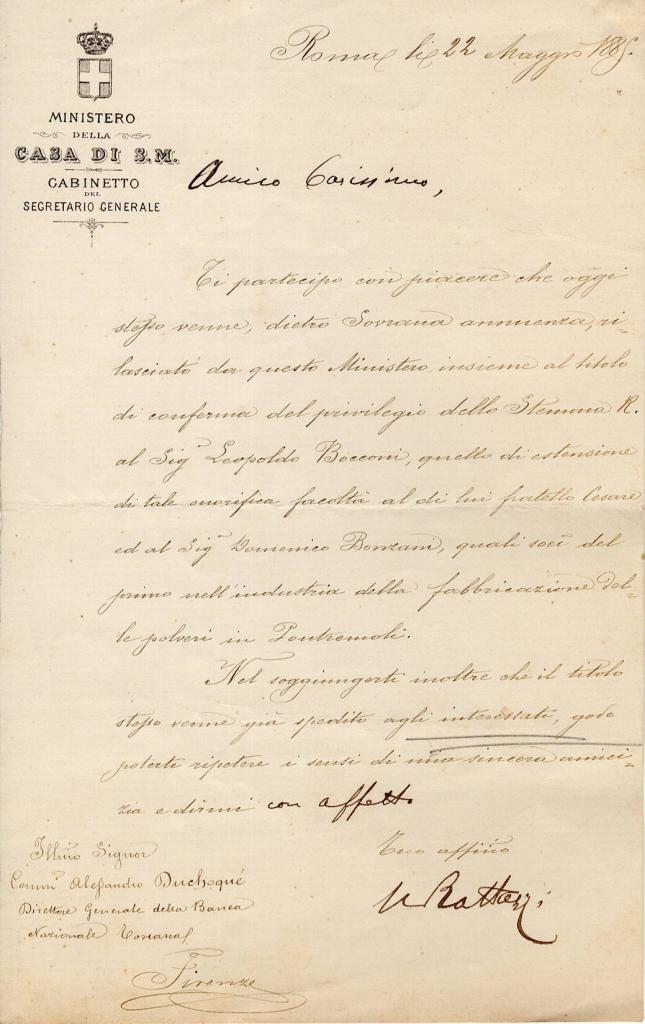 Roma li 22 Maggio 1885.
MINISTERO
DELLA
CASA DI S.M.
GABINETTO
DEL
SEGRETARIO GENERALE
Amico Carissimo,
Ti partecipo con piacere che oggi
stesso venne, dietro Sovrana annuenza, ri-
lasciato da questo Ministero, insieme al titolo
di conferma del privilegio dello Stemma R.
al Sigr Leopoldo Bocconi, quello di estensione
di tale onorifica facoltà al di lui fratello Cesare
ed al Sigr Domenico Bonzani, quali soci del
primo nell'industria della fabbricazione del-
le polveri in Pontremoli.
Nel soggiungerti inoltre che il titolo
stesso venne già spedito agli interessati, godo
poterti ripetere i sensi di una sincera amici-
zia e dirmi con affetto
Tuo affmo
U Rattazzi
Illmo Signor
Comm. Alessandro Duchoqué
Direttore Generale della Banca
Nazionale Toscana
Firenze